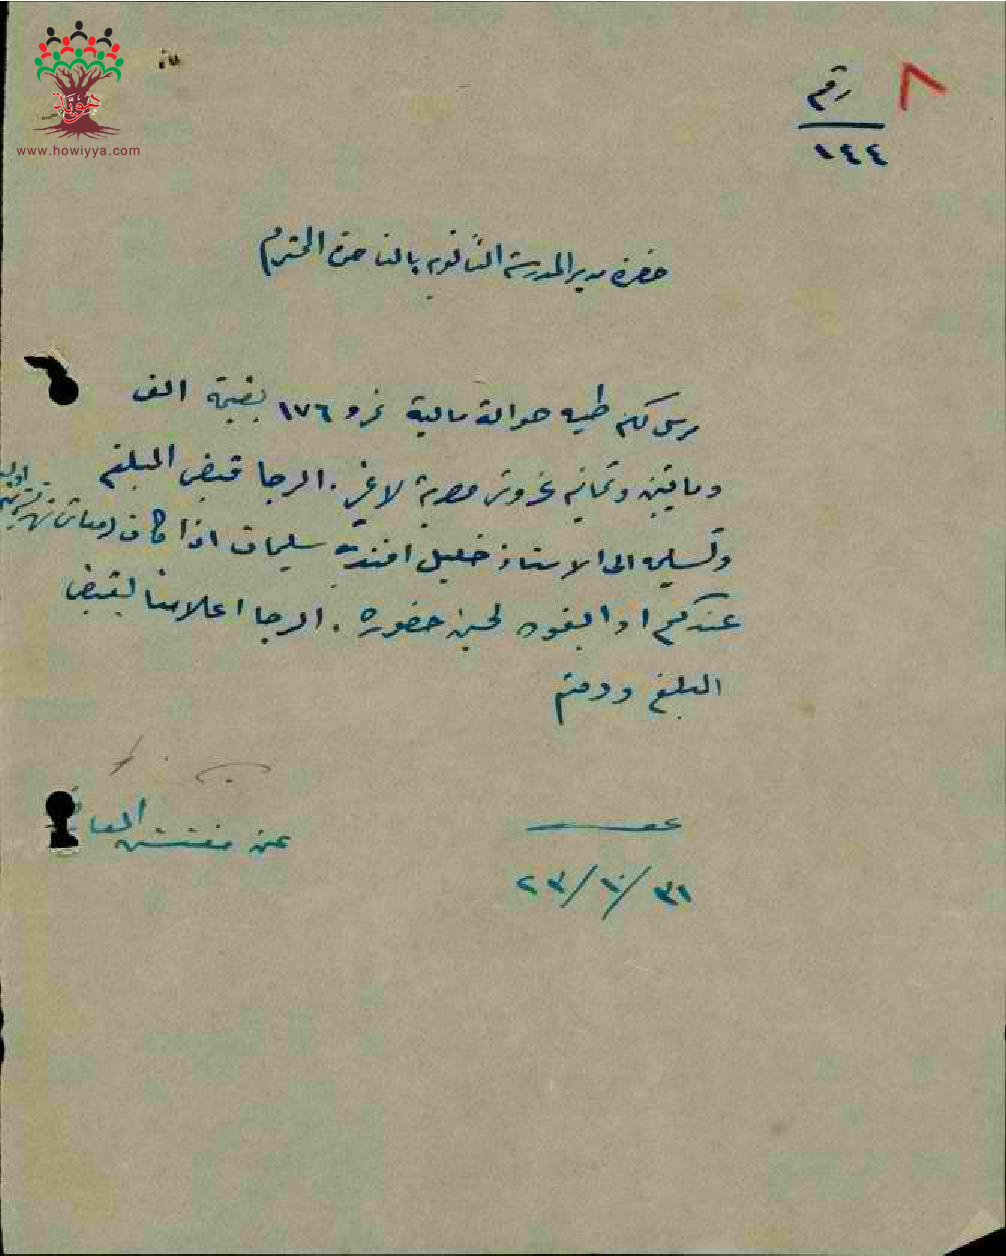 هوية
www.howiyya.com
٨
رقم
١٤٤
حضرة مدير المدرسة الثانوية بالناصرة المحترم
مرسل لكم طيه حوالة مالية نمرو ١٧٦ بقيمة الف
ومايتين وثمانية غروش مصرية لا غير. الرجا قبض المبلغ
وتسليمه الى الاستاذ خليل افندي سليمان اذا كان
عندكم او ابقوه لحين حضوره. الرجا اعلامنا بقبض
المبلغ ودمتم
عن مفتش المعا
٣١/١٠/٢٣